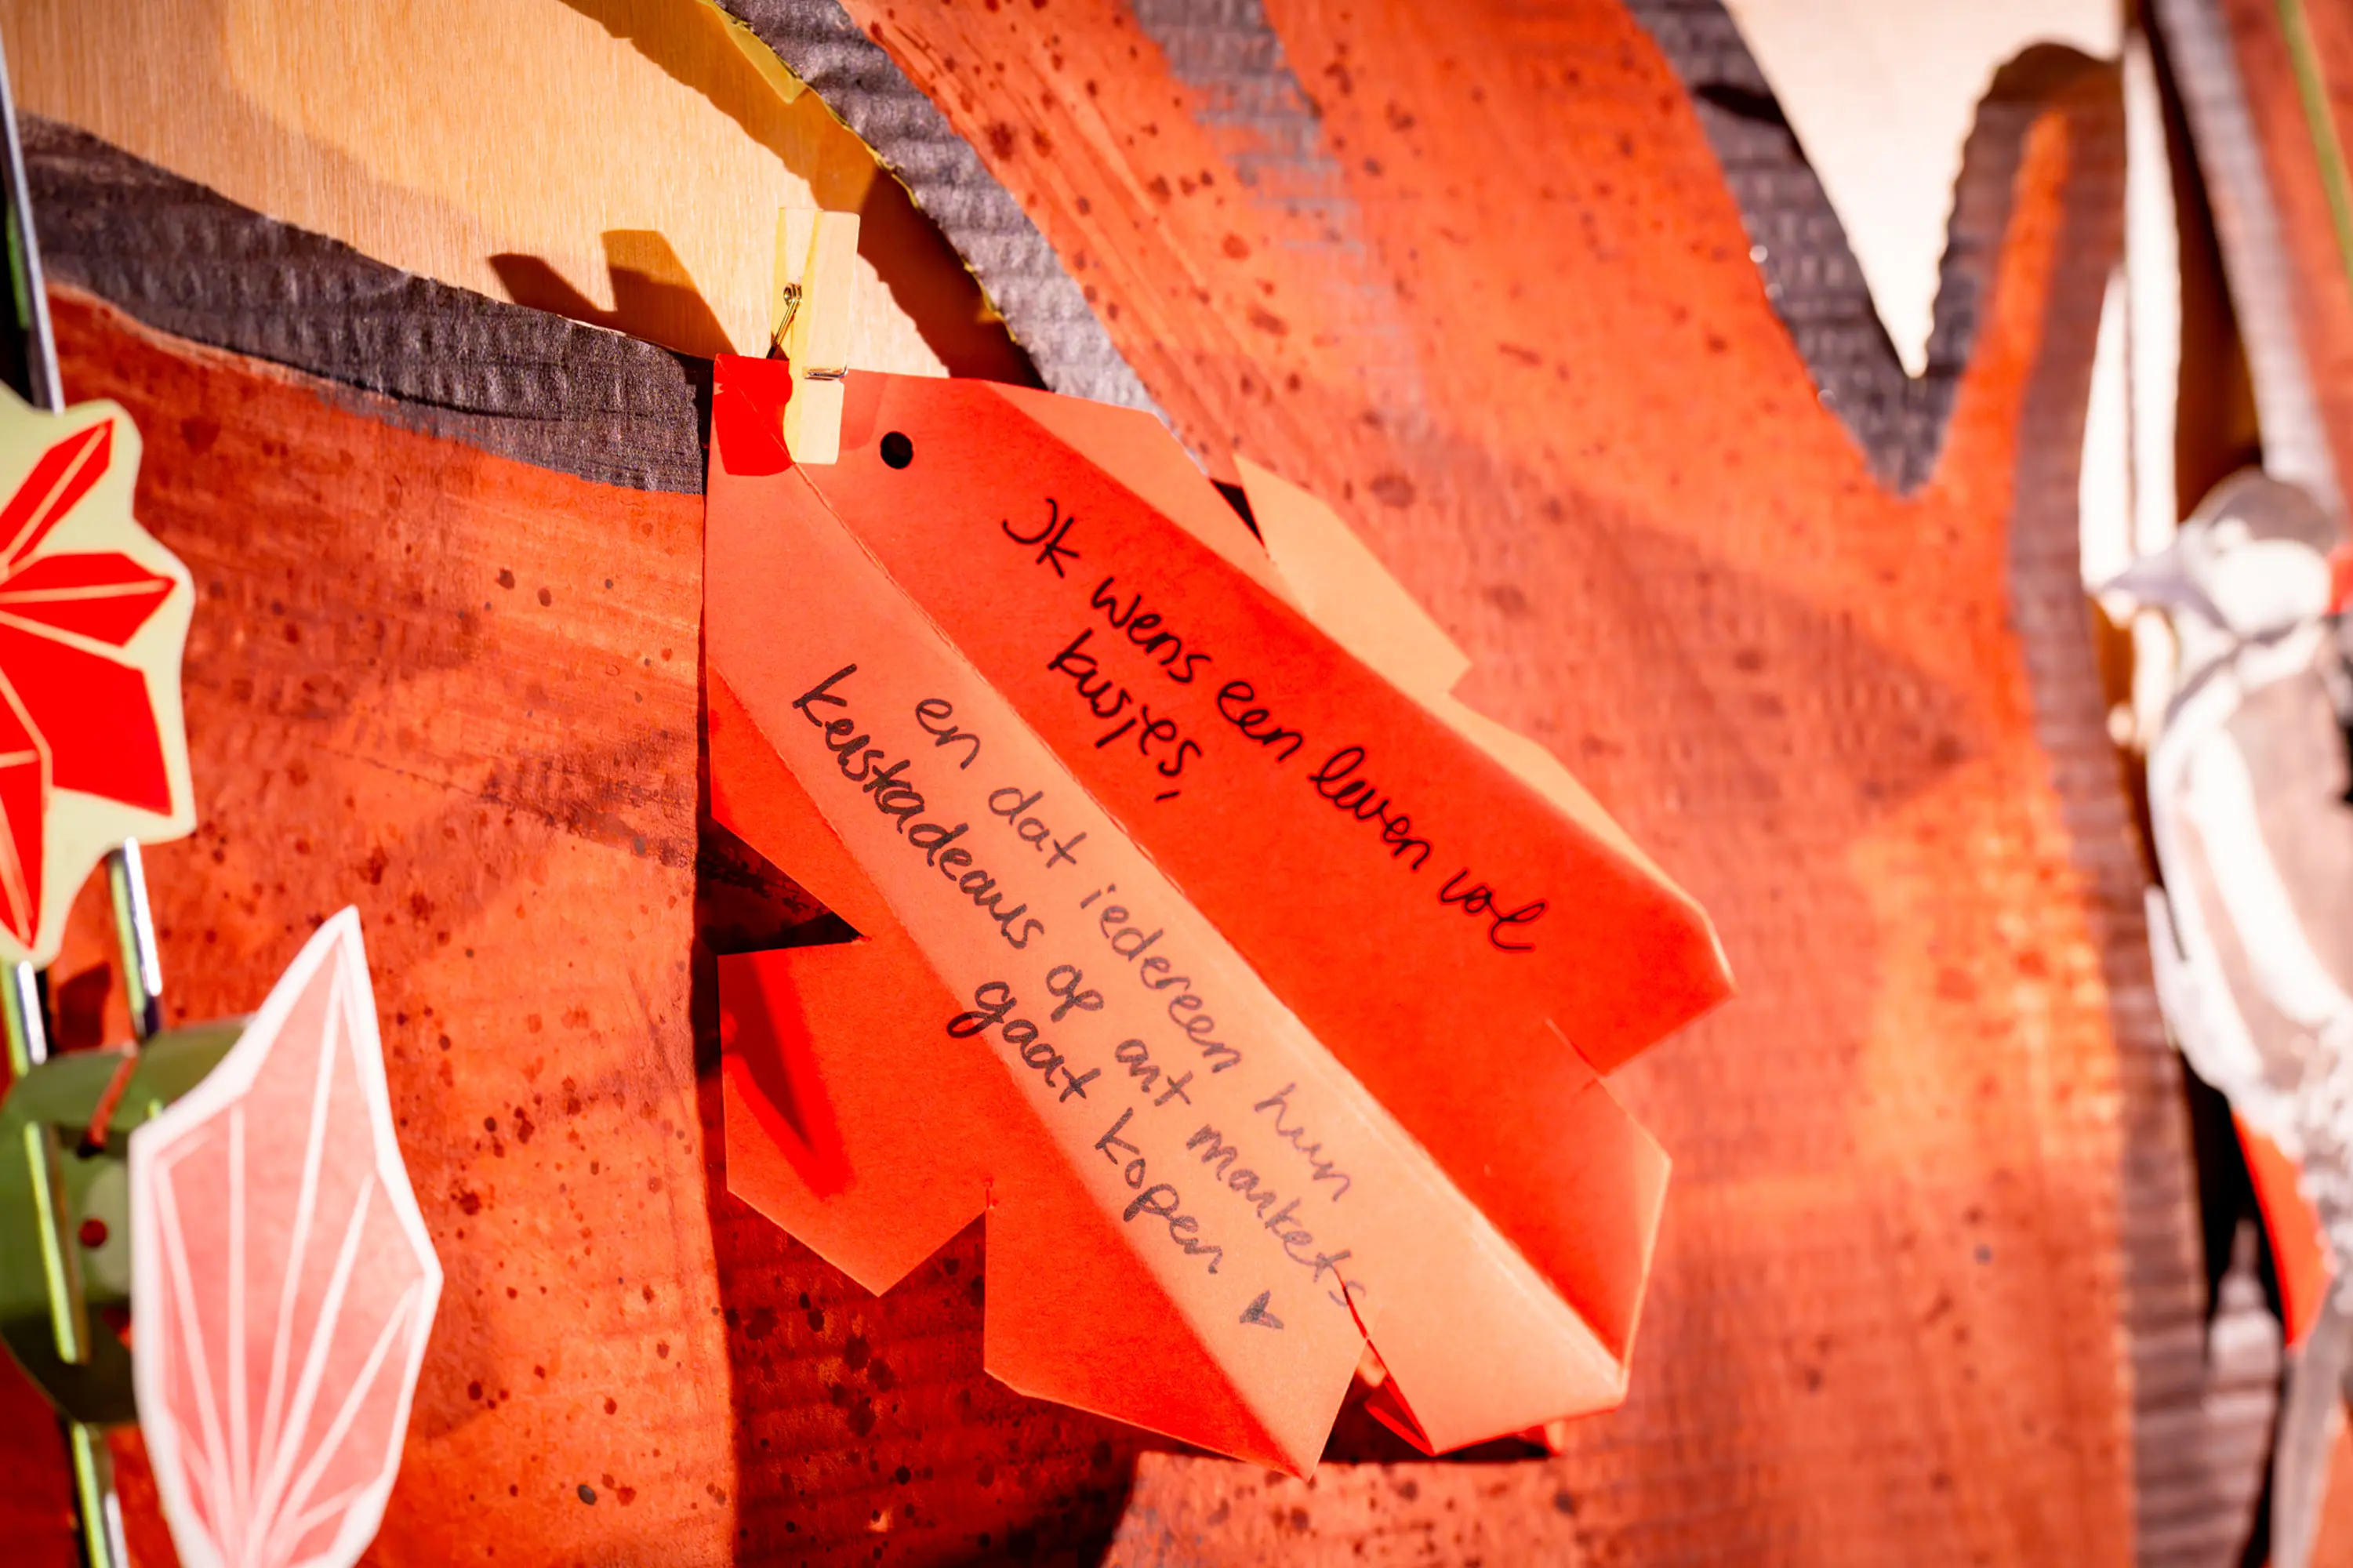 Ik wens een leven vol
kusjes,
en dat iedereen hun
kerstadeaus op art markets
gaat kopen